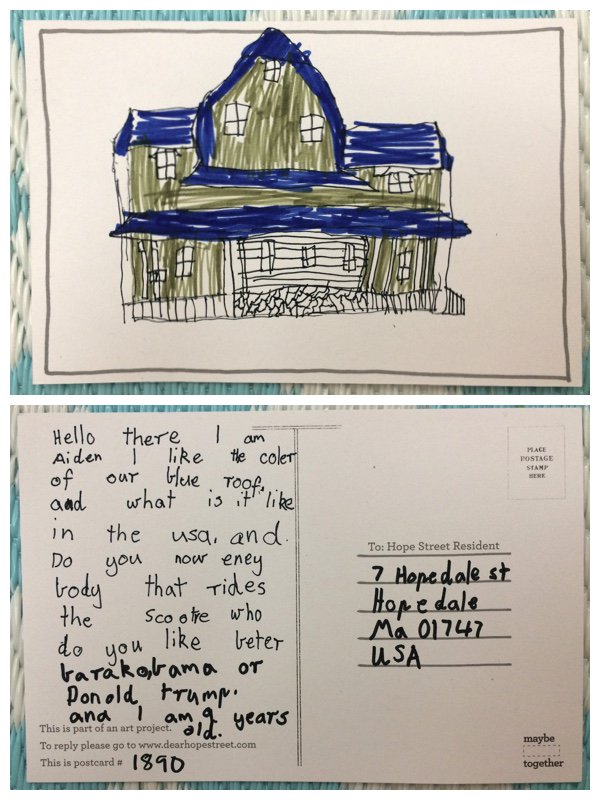 Hello there I am
Aiden I like the coler
of our blue roof.
and what is it like
in the usa. and.
Do you now eney
body that rides
the scootre who
do you like beter
barakobama or
Donold trump.
and I am 9 years
old.
This is part of an art project.
To reply please go to www.dearhopestreet.com
This is postcard # 1890
PLACE
POSTAGE
STAMP
HERE
To: Hope Street Resident
7 Hopedale st
Hopedale
Ma 01747
USA
maybe
together